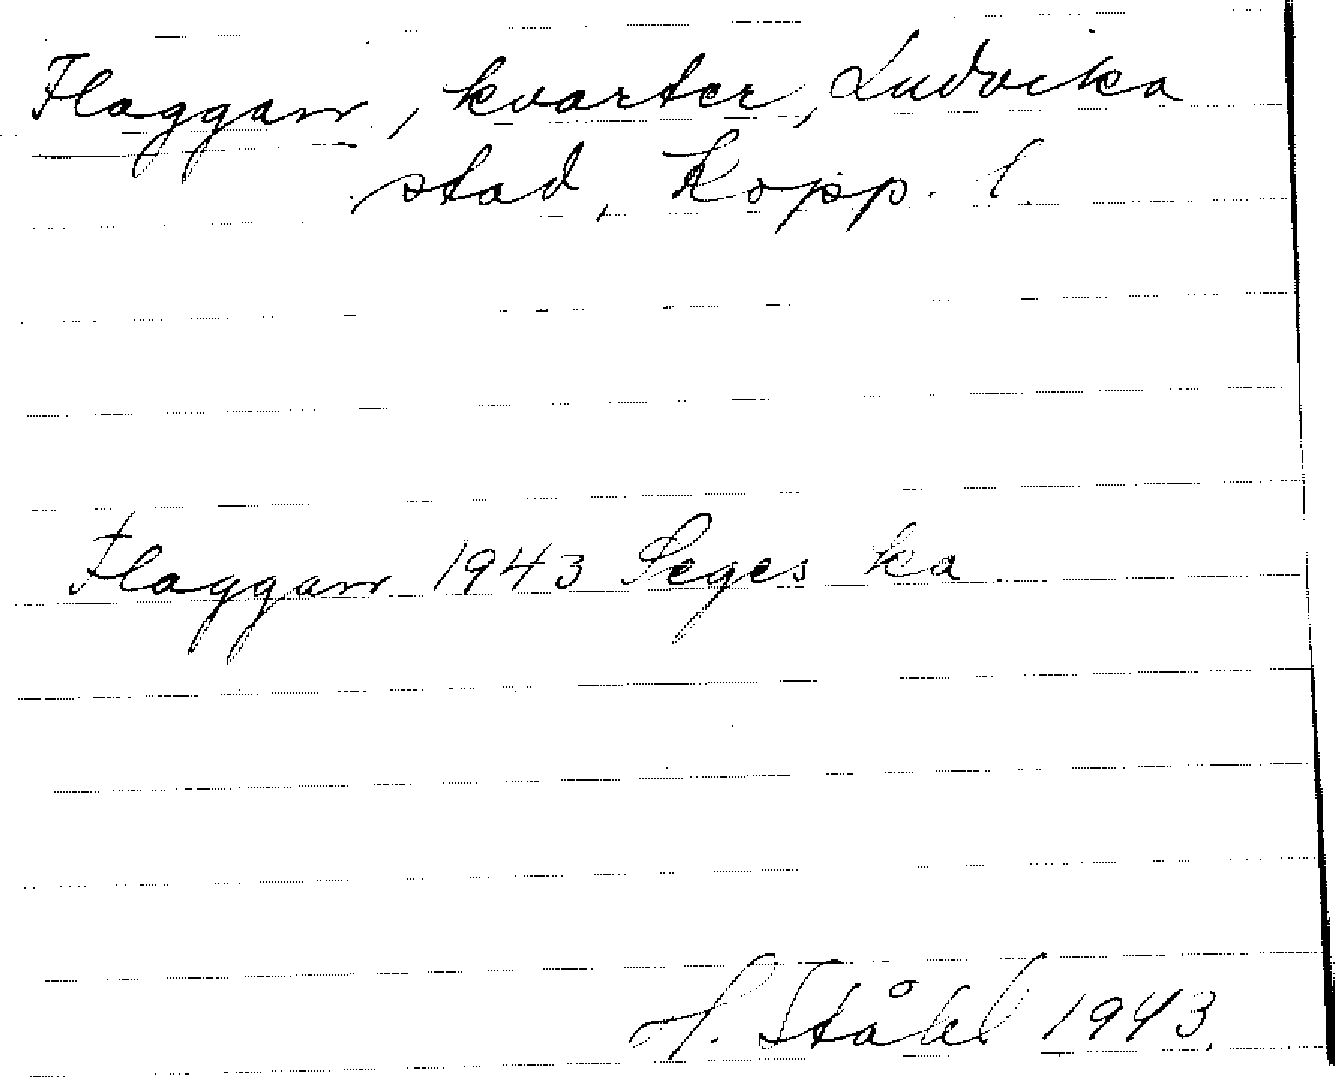 Flaggan, kvarter, Ludvika
stad, Kopp. l.
Flaggan 1943 Seges ka
H. Ståhl 1943.